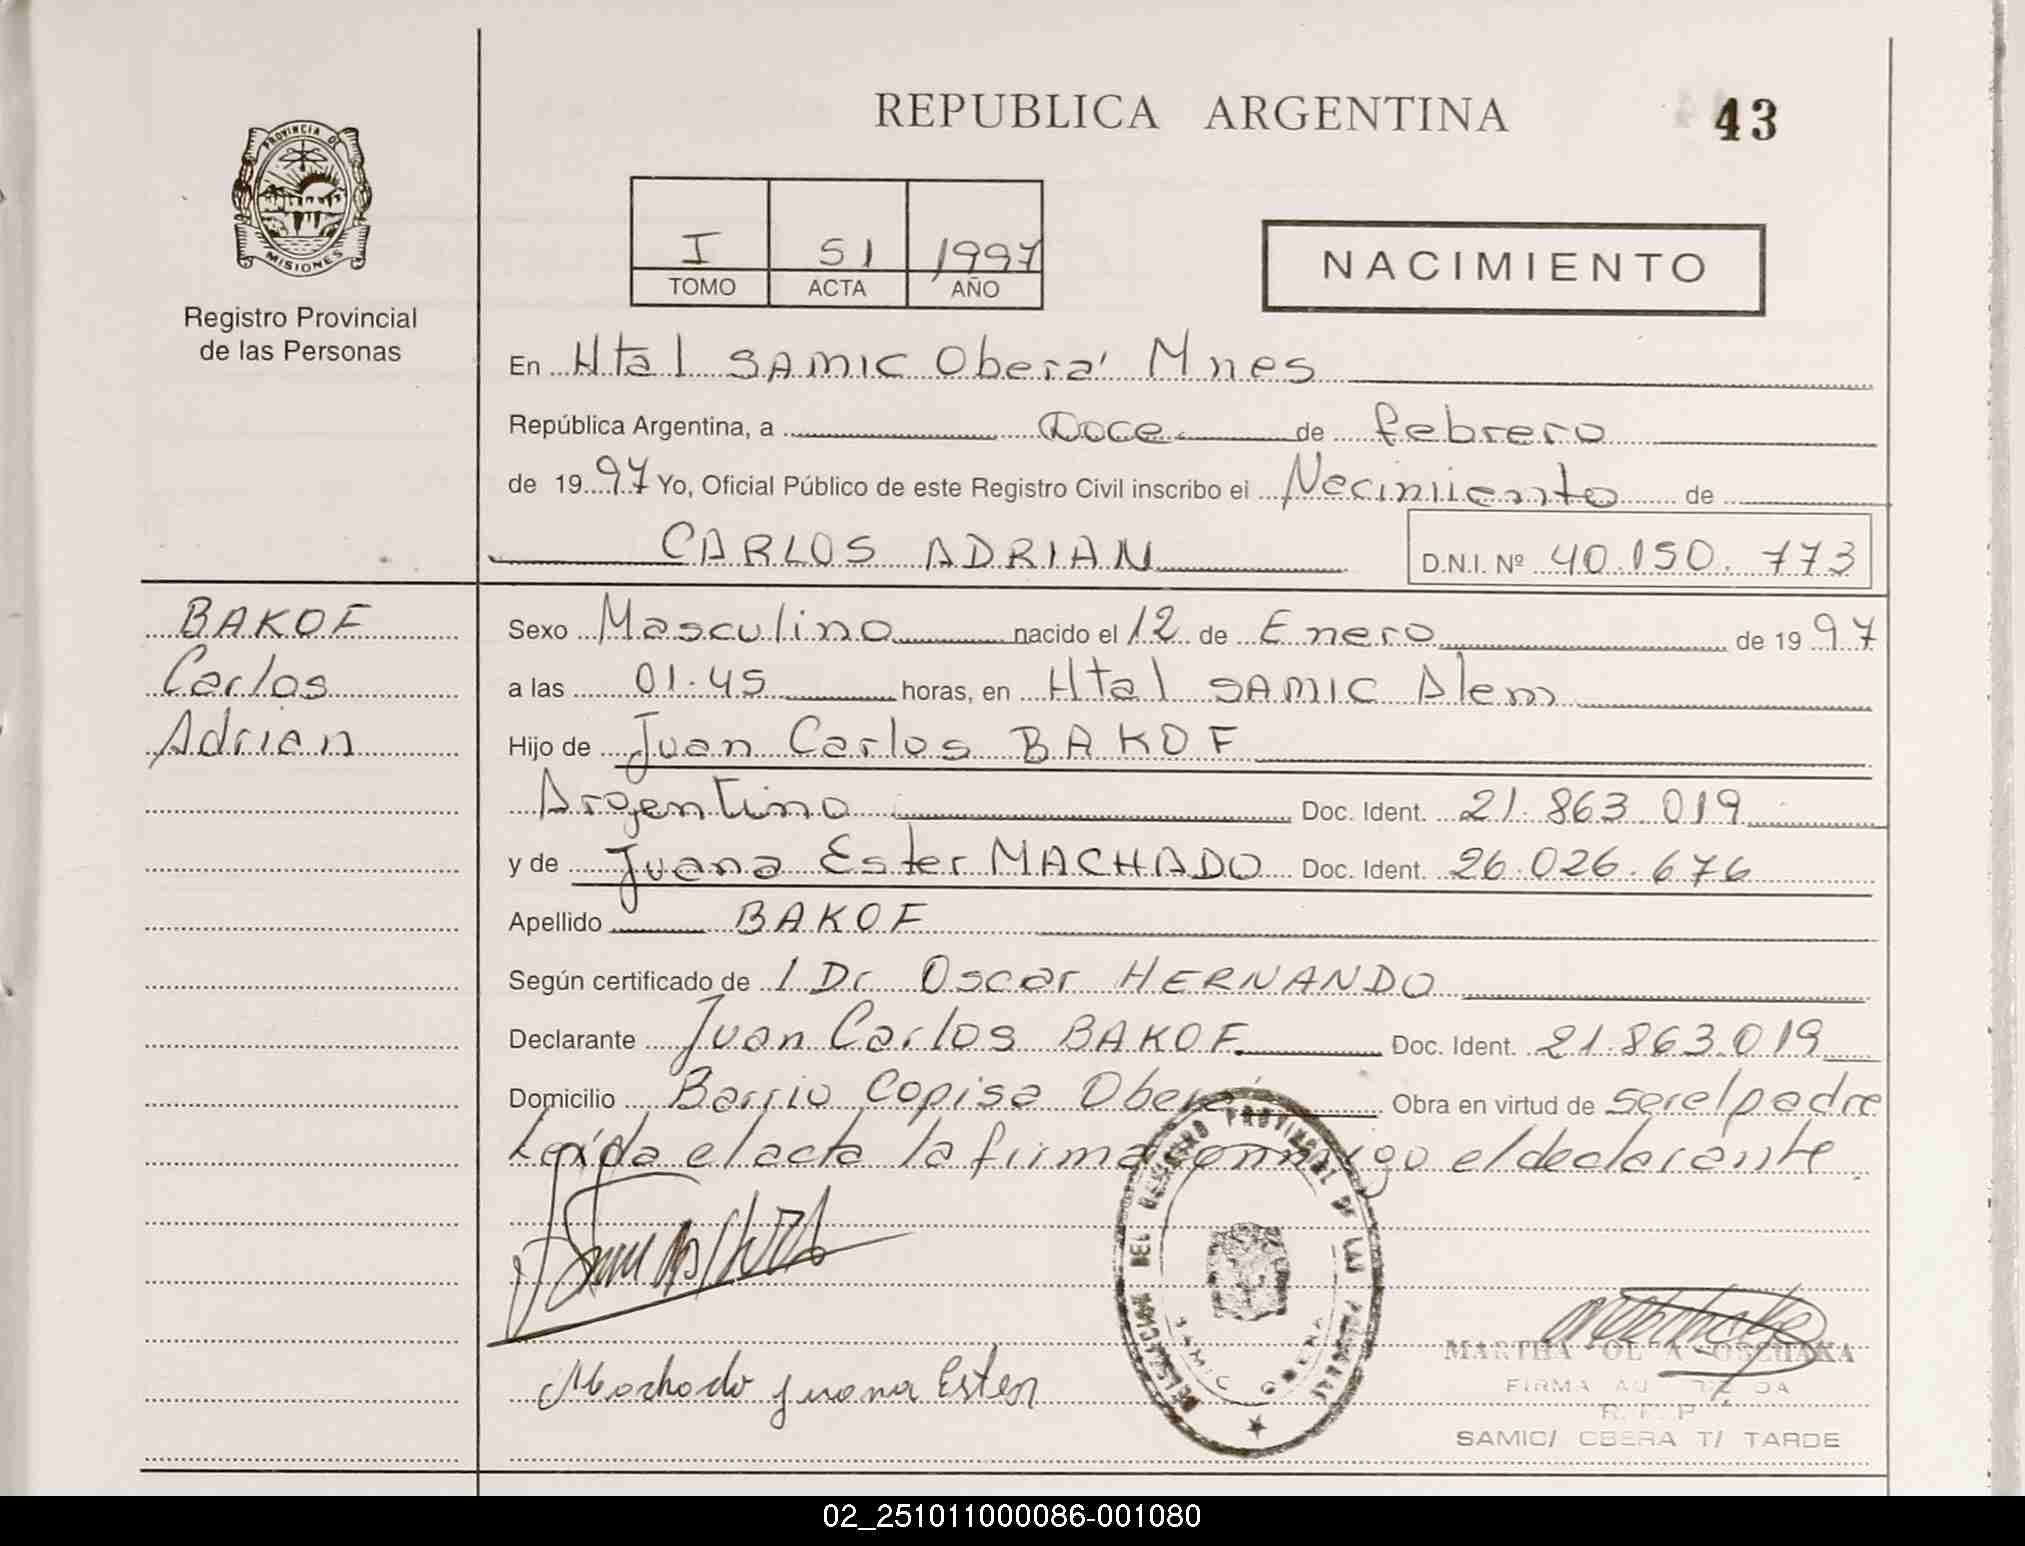 REPUBLICA ARGENTINA
43
PROVINCIA DE
MISIONES
Registro Provincial
de las Personas
I 51 1997
TOMO ACTA AÑO
NACIMIENTO
En Htal SAMIC Oberá Mnes
República Argentina, a Doce de febrero
de 1997 Yo, Oficial Público de este Registro Civil inscribo el Nacimiento de
CARLOS ADRIAN D.N.I. Nº 40.150.773
BAKOF
Carlos
Adrian
Sexo Masculino nacido el 12 de Enero de 1997
a las 01.45 horas, en Htal SAMIC Alem
Hijo de Juan Carlos BAKOF
Argentino Doc. Ident. 21.863.019
y de Juana Ester MACHADO Doc. Ident. 26.026.676
Apellido BAKOF
Según certificado de l Dr Oscar HERNANDO
Declarante Juan Carlos BAKOF Doc. Ident. 21.863.019
Domicilio Barrio Copisa Oberá Obra en virtud de ser el padre
Leída el acta la firma conmigo el declarante
Machado Juana Ester
DEL REGISTRO PROVINCIAL DE LAS PERSONAS
SAMIC OBERA
MARTHA
FIRMA
SAMIC/ OBERA T/ TARDE
02_251011000086-001080